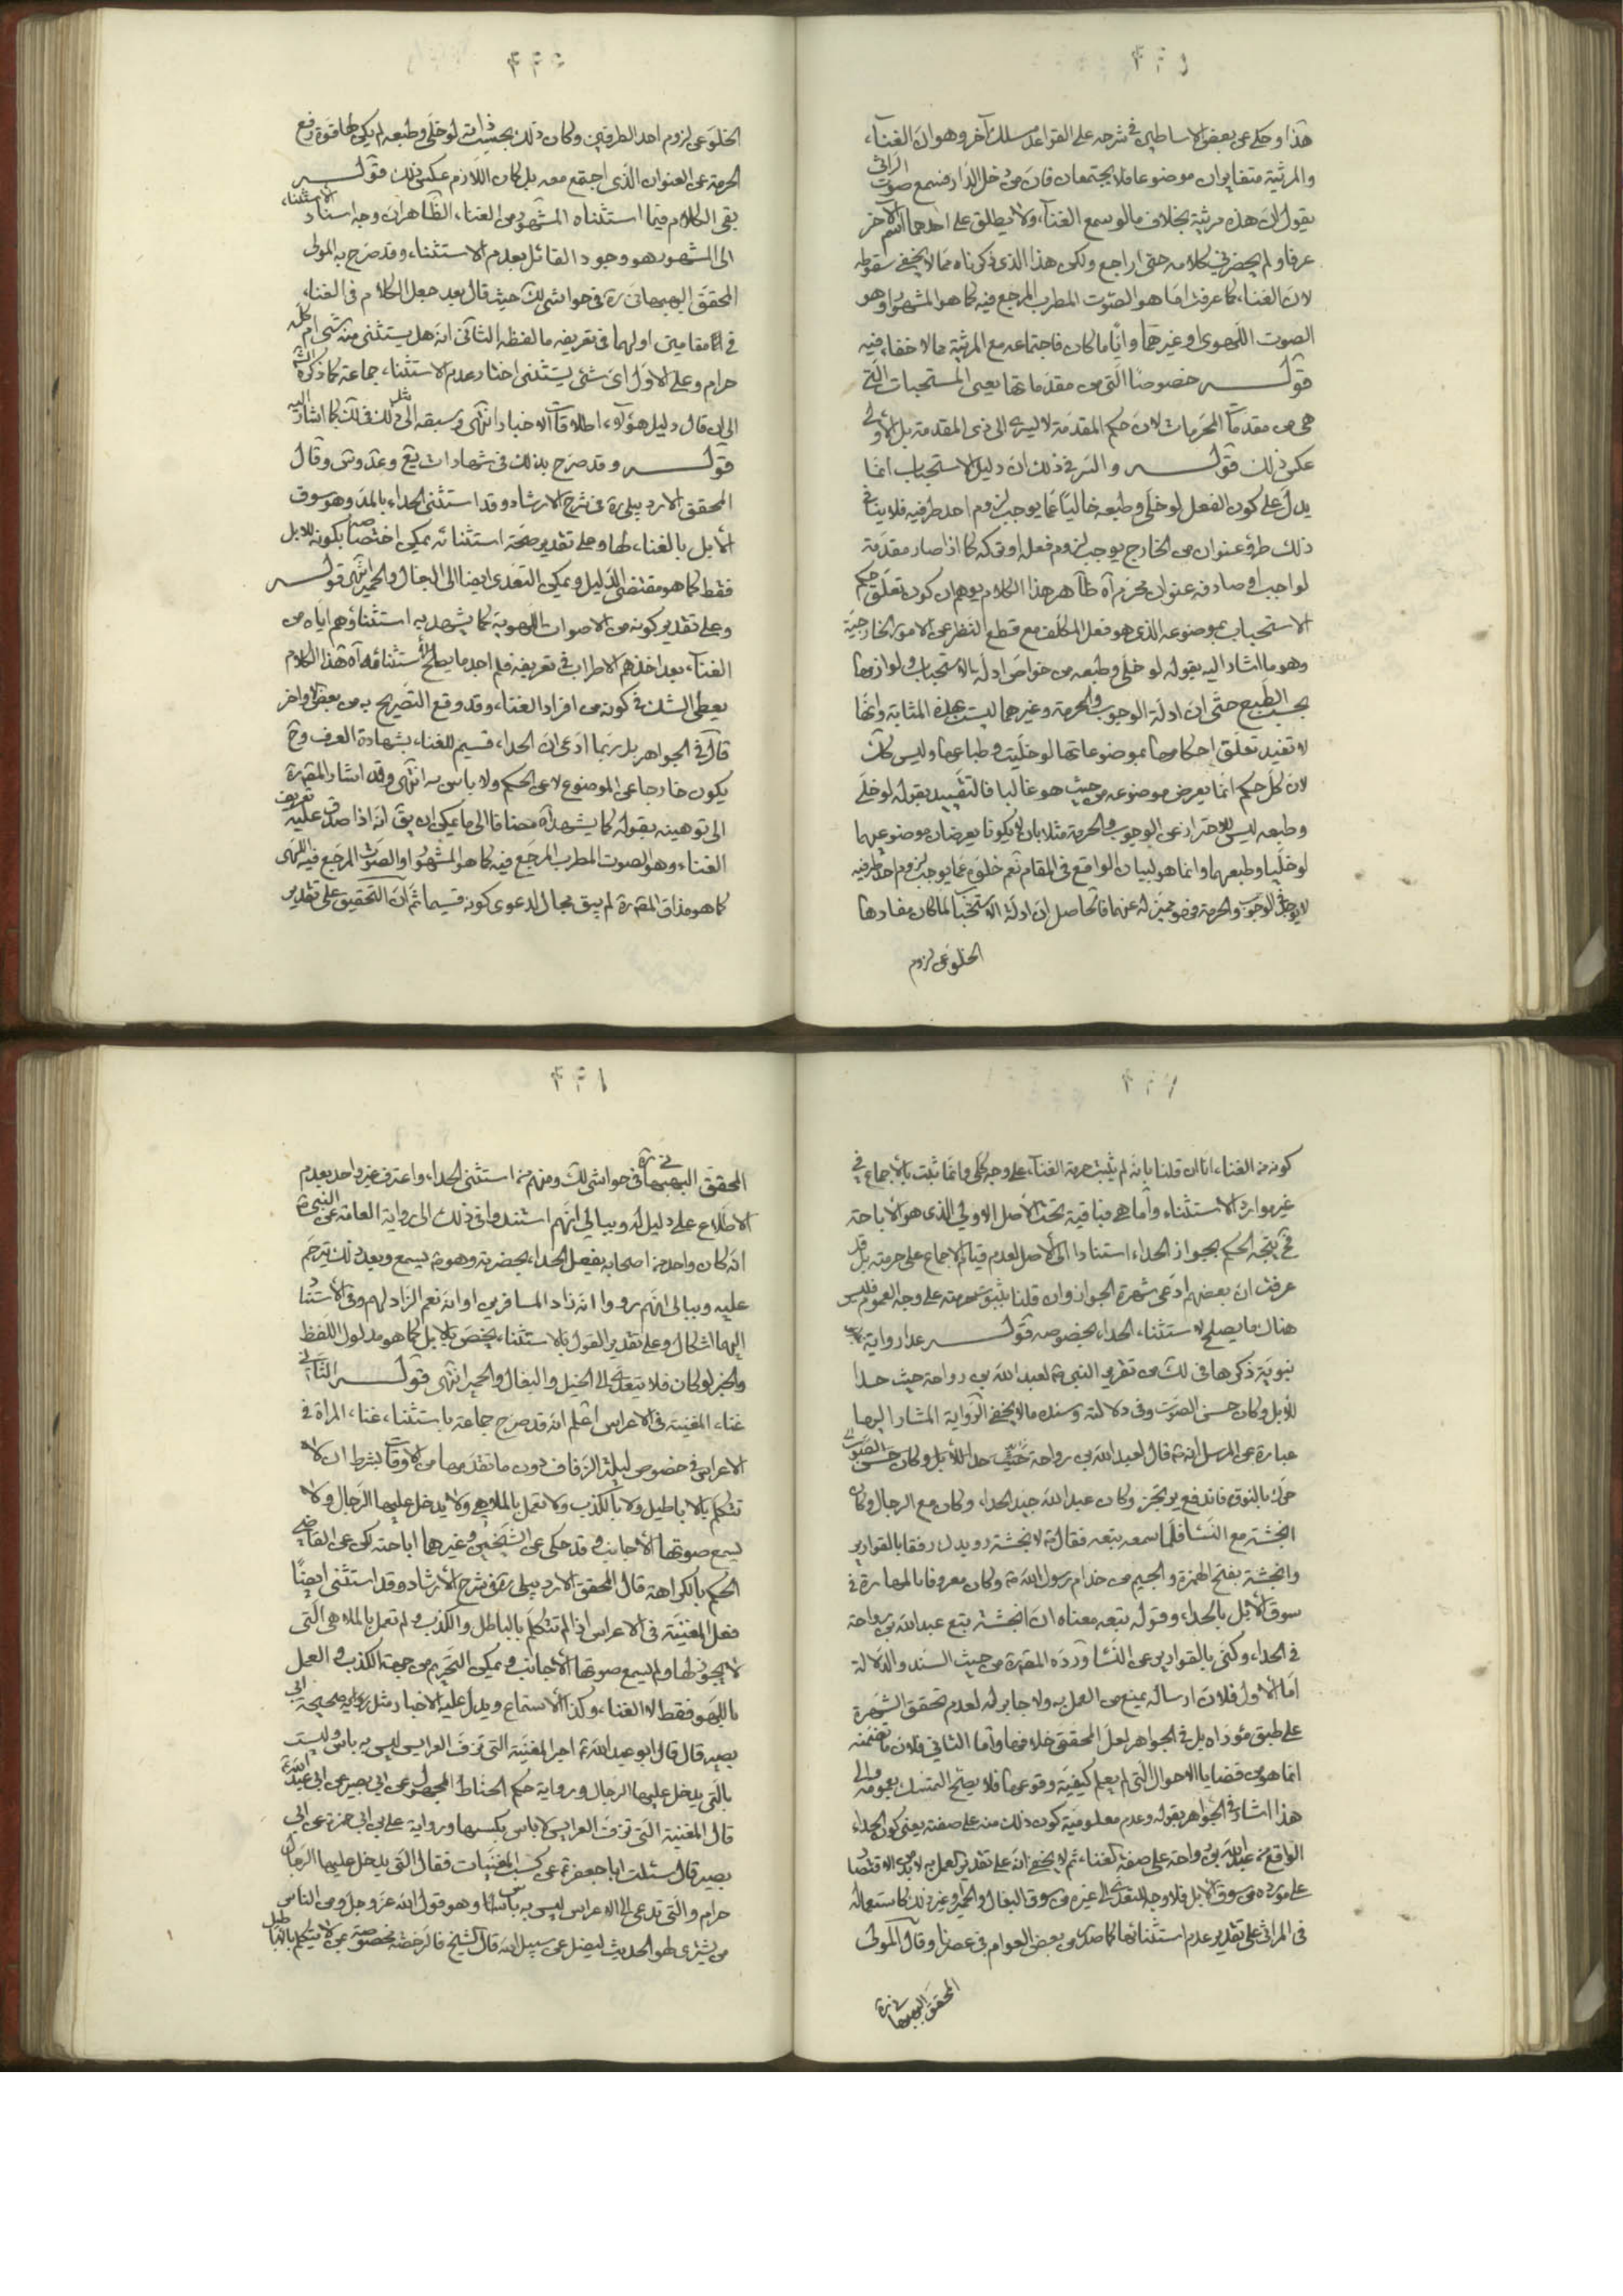 هذا وحكى عن بعض الاساطين في شرحه على القواعد مسلك آخر وهو ان الغناء
والمرثية متغايران موضوعا فلا يجتمعان فان من دخل الدار فسمع صوت الراثي
يقول ان هذه مرثية بخلاف ما لو سمع الغناء ولا يطلق على احدهما اسم الآخر
عرفا ولم يحضرني كلامه حتى اراجع ولكن هذا الذي ذكرناه مما لا يخفى سقوطه
لان الغناء كما عرفت اما هو الصوت المطرب المرجع فيه كما هو المشهور او هو
الصوت اللهوى او غيرهما وايا ما كان فاجتماعه مع المرثية مما لا خفاء فيه
قوله خصوصا التي من مقدماتها يعنى المستحبات التي
هي من مقدمات المحرمات لان حكم المقدمة لا يسرى الى ذى المقدمة بل الاولى
عكس ذلك قوله والسر في ذلك ان دليل الاستحباب انما
يدل على كون الفعل لو خلى وطبعه خاليا عما يوجب لزوم احد طرفيه فلا ينافي
ذلك طرو عنوان من الخارج يوجب لزوم فعله او تركه كما اذا صار مقدمة
لواجب او صادفه عنوان محرم آه ظاهر هذا الكلام يوهم ان كون تعلق حكم
الاستحباب بموضوعه الذى هو فعل المكلف مع قطع النظر عن الامور الخارجية
وهو ما اشار اليه بقوله لو خلى وطبعه من خواص ادلة الاستحباب ولوازمها
بحسب الطبع حتى ان ادلة الوجوب والحرمة وغيرهما ليست بهذه المثابة وانها
لا تفيد تعلق احكامها بموضوعاتها لو خليت وطباعها وليس كك
لان كل حكم انما يعرض موضوعه من حيث هو غالبا فالتقييد بقوله لو خلى
وطبعه ليس للاحتراز عن الوجوب والحرمة مثلا بان لا يكونا يعرضان موضوعيهما
لو خليا وطبعهما وانما هو لبيان الواقع في المقام نعم خلوه عما يوجب لزوم احد طرفيه
لا يوجد في الوجوب والحرمة فهو مميز له عنهما فالحاصل ان ادلة الاستحباب لما كان مفادها
الخلو عن لزوم
الخلو عن لزوم احد الطرفين وكان ذلك بحسب ذاته لو خلى وطبعه لم يكن لها قوة رفع
الحرمة عن العنوان الذي اجتمع معه بل كان اللازم عكس ذلك قوله
بقى الكلام فيما استثناه المشهور من الغناء الظاهر ان وجه اسناد الاستثناء
الى المشهور هو وجود القائل بعدم الاستثناء وقد صرح به المولى
المحقق البهبهانى ره في حواشي لك حيث قال بعد جعل الكلام في الغناء
في مقامين اولهما في تعريفه ما لفظه الثاني انه هل يستثنى منه شئ ام كله
حرام وعلى الاول اى شئ يستثنى اختار عدم الاستثناء جماعة كما ذكره الش
الى ان قال دليل هؤلاء اطلاقات الاخبار انتهى وسبقه الى مثل ذلك في لك كما اشار اليه
قوله وقد صرح بذلك في شهادات يع وعد وس وقال
المحقق الاردبيلى ره في شرح الارشاد وقد استثنى الحداء بالمد وهو سوق
الابل بالغناء لها وعلى تقدير صحة استثنائه يمكن اختصاصه بكونه للابل
فقط كما هو مقتضى الدليل ويمكن التعدى ايضا الى البغال والحمير انتهى قوله
وعلى تقدير كونه من الاصوات اللهوية كما يشهد به استثناؤهم اياه من
الغناء بعد اخذهم الاطراب في تعريفه فلم اجد ما يصلح لاستثنائه آه هذا الكلام
يعطى الشك في كونه من افراد الغناء وقد وقع التصريح به من بعض الاواخر
قال في الجواهر بل ربما ادعى ان الحداء قسيم للغناء بشهادة العرف وح
يكون خارجا عن الموضوع لا عن الحكم ولا باس به انتهى وقد اشار المقرره
الى توهينه بقوله كما يشهد آه مضافا الى ما يمكن ان يق انه اذا صدق عليه تعريف
الغناء وهو الصوت المطرب المرجع فيه كما هو المشهور او الصوت المرجع فيه اللهوى
كما هو مذاق المقرره لم يبق مجال لدعوى كونه قسيما ثم ان التحقيق على تقدير
كونه من الغناء انا ان قلنا بانه لم يثبت حرمة الغناء على وجه كلى وانما ثبت بالاجماع في
غير موارد الاستثناء واما هي فباقية تحت الاصل الاولى الذي هو الاباحة
فح يتجه الحكم بجواز الحداء استنادا الى الاصل لعدم قيام الاجماع على حرمته بل قد
عرفت ان بعضهم ادعى شهرة الجواز وان قلنا بثبوت حرمته على وجه العموم فليس
هناك ما يصلح لاستثناء الحداء بخصوصه قوله عدا رواية
نبوية ذكرها في لك من تقرير النبي ص لعبد الله بن رواحة حيث حدا
للابل وكان حسن الصوت وفي دلالته وسنده ما لا يخفى الرواية المشار اليها
عبارة عن المرسل انه ص قال لعبد الله بن رواحة حيث حدا للابل وكان حسن الصوت
حرك بالنوق فاندفع يرتجز وكان عبد الله جيد الحداء وكان مع الرجال وكان
انجشة مع النساء فلما سمعه تبعه فقال ص لانجشة رويدك رفقا بالقوارير
وانجشة بفتح الهمزة والجيم من خدام رسول الله ص وكان معروفا بالمهارة في
سوق الابل بالحداء وقوله تبعه معناه ان انجشة تبع عبد الله بن رواحة
في الحداء وكنى بالقوارير عن النساء ورده المقرره من حيث السند والدلالة
اما الاول فلان ارساله يمنع من العمل به ولا جابر له لعدم تحقق الشهرة
على طبق مؤداه بل في الجواهر لعل المحقق خلافها واما الثاني فلان ما تضمنه
انما هو من قضايا الاحوال التي لم يعلم كيفية وقوعها فلا يصلح التمسك بعمومه والى
هذا اشار في الجواهر بقوله وعدم معلومية كون ذلك منه على صفته يعنى كون الحداء
الواقع من عبد الله بن رواحة على صفة الغناء ثم لا يخفى انه على تقدير العمل به لا بد من الاقتصار
على مورده من سوق الابل فلا وجه للتعدى الى غيره من سوق البغال والحمير وغير ذلك كاستعماله
في المراثى على تقدير عدم استثنائها كما صدر من بعض العوام في عصرنا وقال المولى
المحقق البهبهانى ره
المحقق البهبهانى ره في حواشي لك ومنهم من استثنى الحداء واعترف غير واحد بعدم
الاطلاع على دليل له وببالى انهم استندوا في ذلك الى رواية العامة عن النبي ص
انه كان واحد من اصحابه يفعل الحداء بحضرته وهو ص يسمع وبعد ذلك ترحم
عليه وببالى انهم رووا انه زاد المسافرين او انه نعم الزاد لهم وفي الاستناد
اليها اشكال وعلى تقدير القول بالاستثناء يختص بالابل كما هو مدلول اللفظ
والخبر لو كان فلا يتعدى الى الخيل والبغال والحمير انتهى قوله الثاني
غناء المغنية في الاعراس اعلم انه قد صرح جماعة باستثناء غناء المراة في
الاعراس في خصوص ليلة الزفاف دون ما تقدمها من الاوقات بشرط ان لا
تتكلم بالاباطيل ولا بالكذب ولا تعمل بالملاهي ولا يدخل عليها الرجال ولا
يسمع صوتها الاجانب وقد حكى عن الشيخين وغيرهما اباحته لكن عن القاضي
الحكم بالكراهة قال المحقق الاردبيلى ره في شرح الارشاد وقد استثنى ايضا
فعل المغنية في الاعراس اذا لم تتكلم بالباطل والكذب ولم تعمل بالملاهى التي
لا يجوز لها ولم يسمع صوتها الاجانب ويمكن التحريم من جهة الكذب والعمل
باللهو فقط لا الغناء وكذا الاستماع ويدل عليه الاخبار مثل رواية صحيحة ابى
بصير قال قال ابو عبد الله ع اجر المغنية التي تزف العرايس ليس به باس وليست
بالتي يدخل عليها الرجال ورواية حكم الحناط المجهول عن ابى بصير عن ابى عبد الله ع
قال المغنية التي تزف العرايس لا باس بكسبها ورواية على بن ابى حمزة عن ابى
بصير قال سئلت ابا جعفر ع عن كسب المغنيات فقال التي يدخل عليها الرجال
حرام والتي تدعى الى الاعراس ليس به باس وهو قول الله عز وجل ومن الناس
من يشترى لهو الحديث ليضل عن سبيل الله قال الشيخ فالرخصة مخصوصة بمن لا يتكلم بالاباطيل